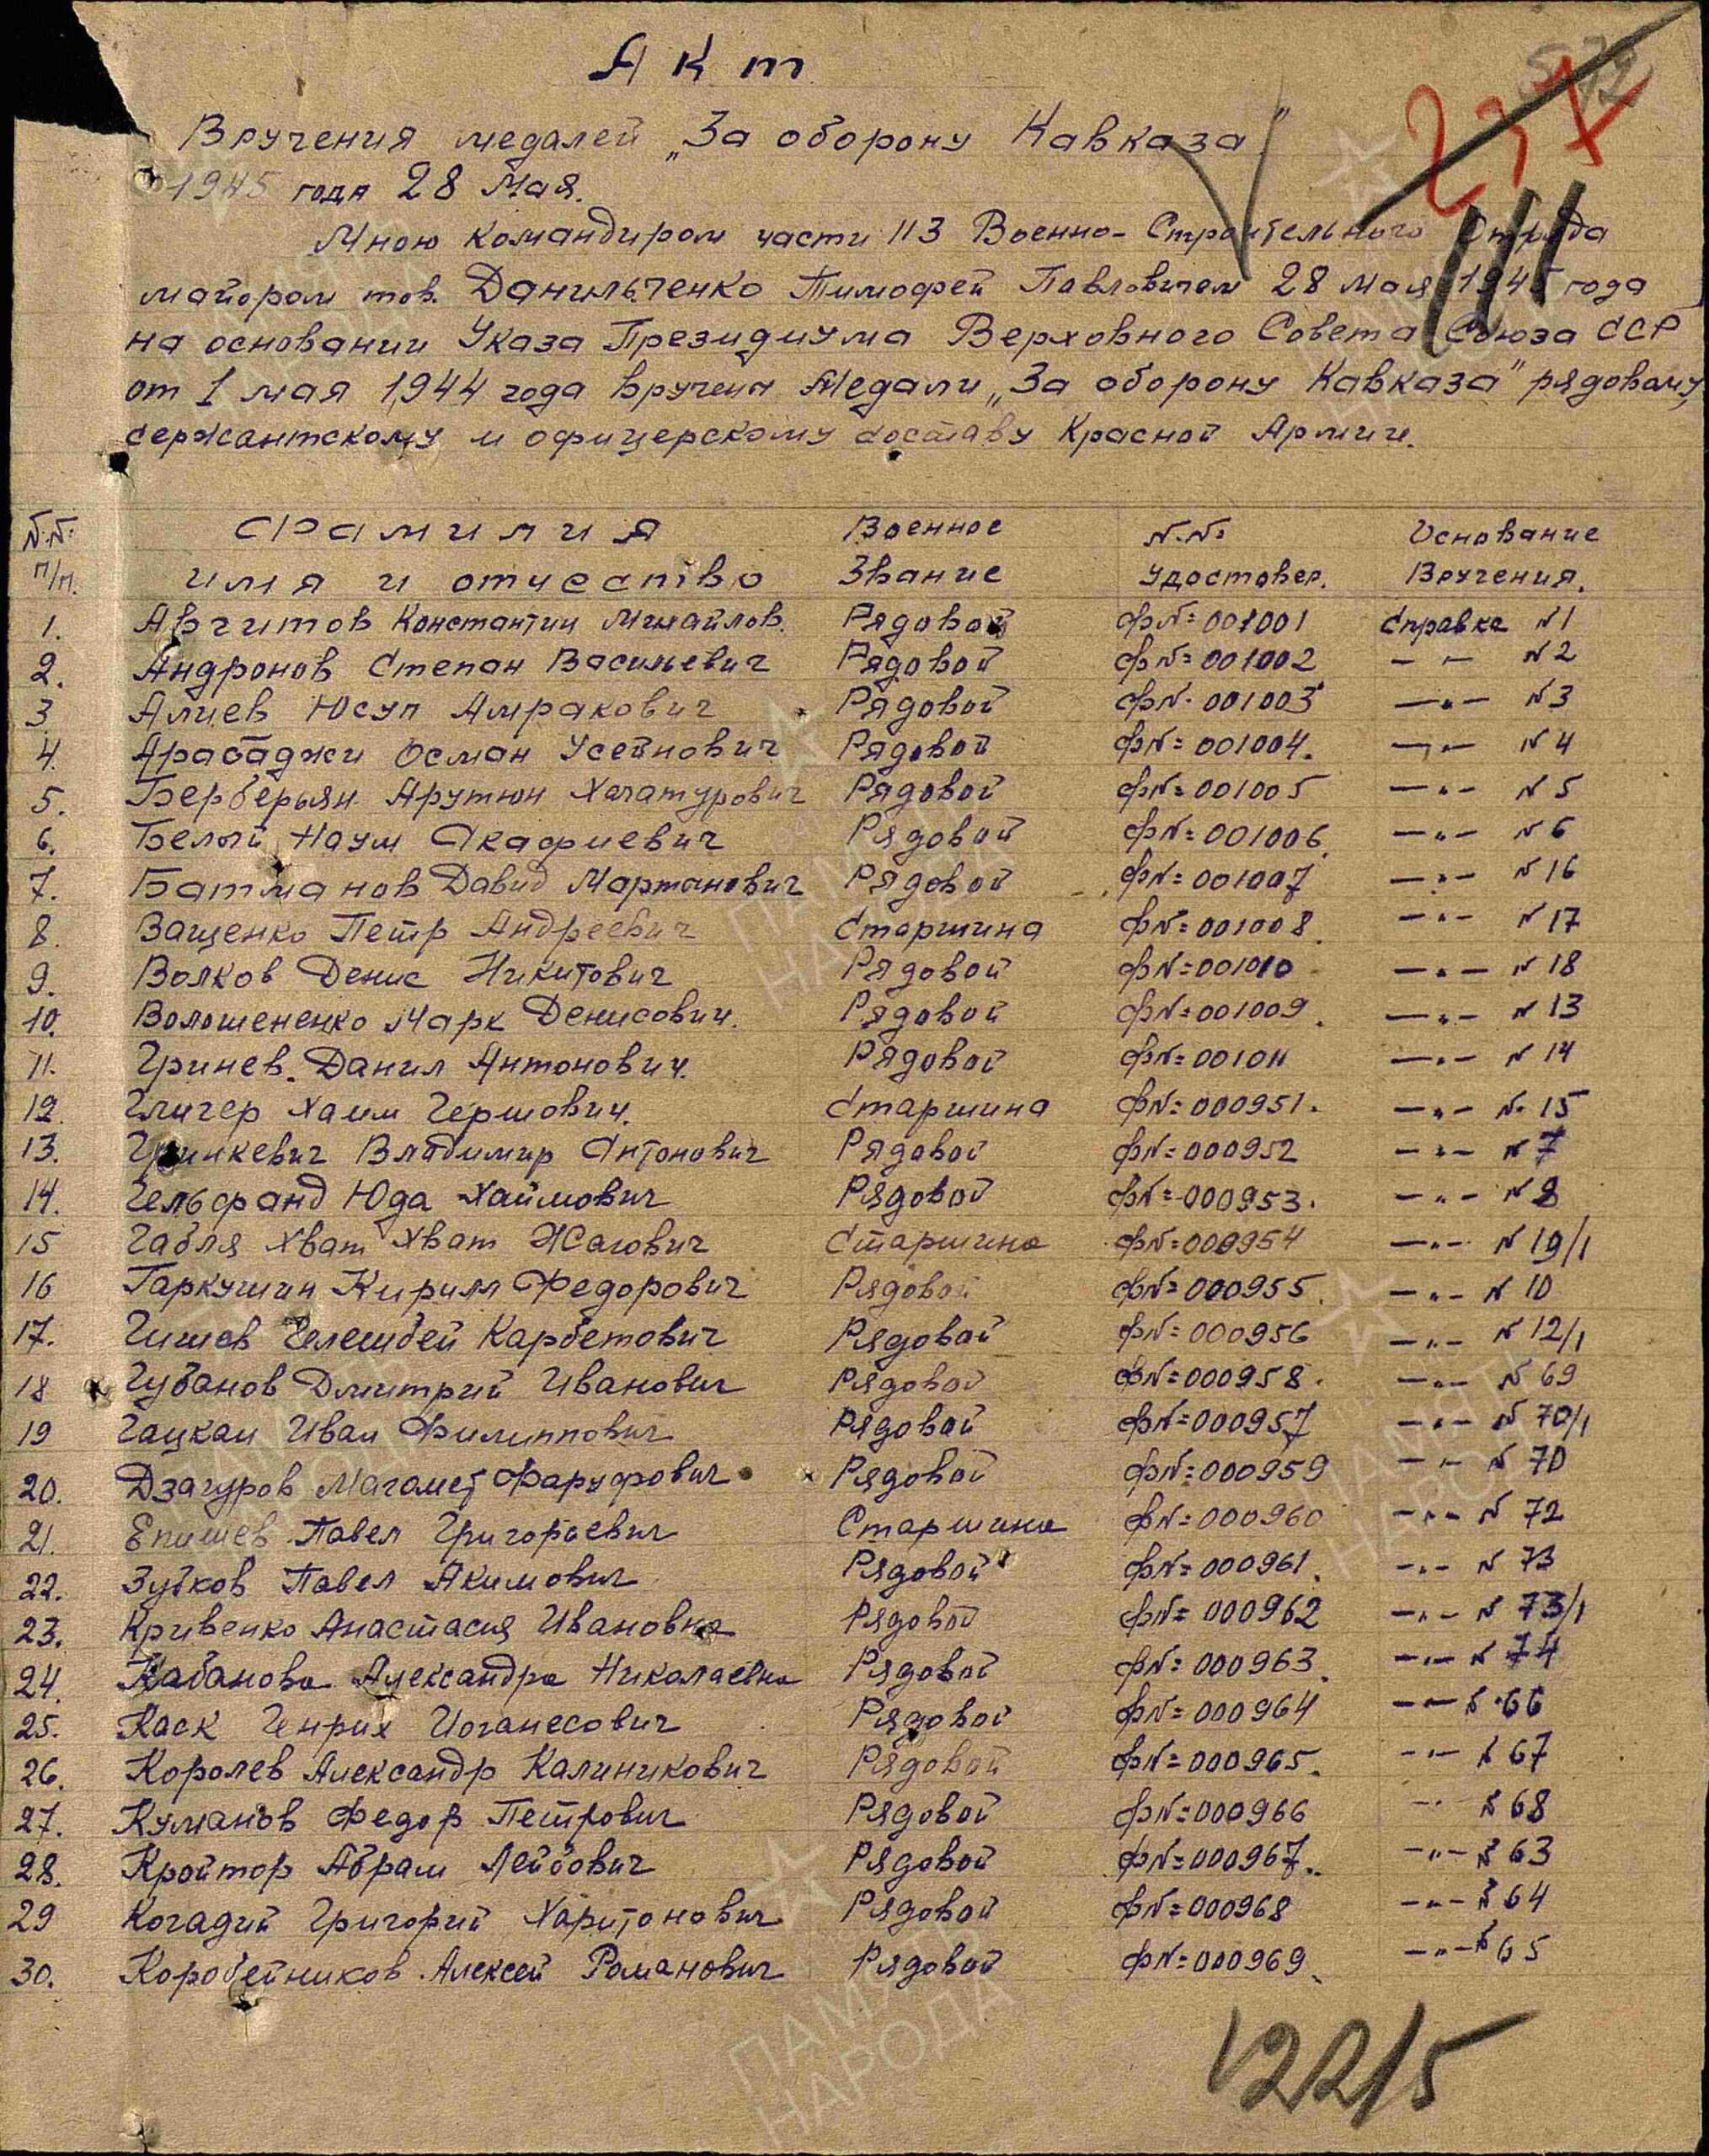 Акт
Вручения медалей „За оборону Кавказа"
1945 года 28 мая.
237
Мною командиром части 113 Военно-Строительного Отряда
майором тов. Данильченко Тимофей Павловичем 28 мая 1945 года
на основании Указа Президиума Верховного Совета Союза ССР
от 1 мая 1944 года вручена Медали „За оборону Кавказа" рядовому,
сержантскому и офицерскому составу Красной Армии.
N.N: Фамилия Военное N.N: Основание
п/п. имя и отчество Звание удостовер. Вручения.
1. Константин Михайлов. Рядовой фN=001001 Справка N1
2. Андронов Степан Васильевич Рядовой фN=001002 —"— N2
3 Алиев Юсуп Амракович Рядовой фN=001003 —"— N3
4. Арабаджи Осман Усейнович Рядовой фN=001004. —"— N4
5. Берберьян Арутюн Хачатурович Рядовой фN=001005 —"— N5
6. Белый Наум Рядовой фN=001006. —"— N6
7. Батманов Давид Мартынович Рядовой фN=001007 —"— N16
8. Ващенко Петр Андреевич Старшина фN=001008. —"— N17
9. Волков Денис Никитович Рядовой фN=001010 —"— N18
10. Волошененко Марк Денисович. Рядовой фN=001009. —"— N13
11. Гринев. Данил Антонович. Рядовой фN=001011 —"— N14
12. Глигер Хаим Гершович. Старшина фN=000951. —"— N15
13. Гринкевич Владимир Антонович Рядовой фN=000952 —"— N7
14. Гельфанд Юда Хаймович Рядовой фN=000953. —"— N8
15 Габля Хват Хват Жагович Старшина фN=000954 —"— N19/1
16 Гаркушин Кирилл Федорович Рядовой фN=000955. —"— N10
17. Гишев Карбетович Рядовой фN=000956 —"— N12/1
18 Губанов Дмитрий Иванович Рядовой фN=000958. —"— N69
19 Гацкан Иван Филиппович Рядовой фN=000957 —"— N70/1
20. Дзагуров Магомет Фаруфович Рядовой фN=000959 —"— N70
21. Епишев Павел Григорьевич Старшина фN=000960 —"— N72
22. Зубков Павел Акимович Рядовой фN=000961. —"— N73
23. Кривенко Анастасия Ивановна Рядовой фN=000962 —"— N73/1
24. Кабанова Александра Николаевна Рядовой фN=000963. —"— N74
25. Каск Генрих Иоганесович Рядовой фN=000964 —"— N66
26. Королев Александр Калиникович Рядовой фN=000965. —"— N67
27. Куманов Федор Петрович Рядовой фN=000966 —"— N68
28. Кройтор Абрам Лейбович Рядовой фN=000967. —"— N63
29 Когадий Григорий Харитонович Рядовой фN=000968 —"— N64
30. Коробейников Алексей Романович Рядовой фN=000969. —"— N65
ПАМЯТЬ
НАРОДА